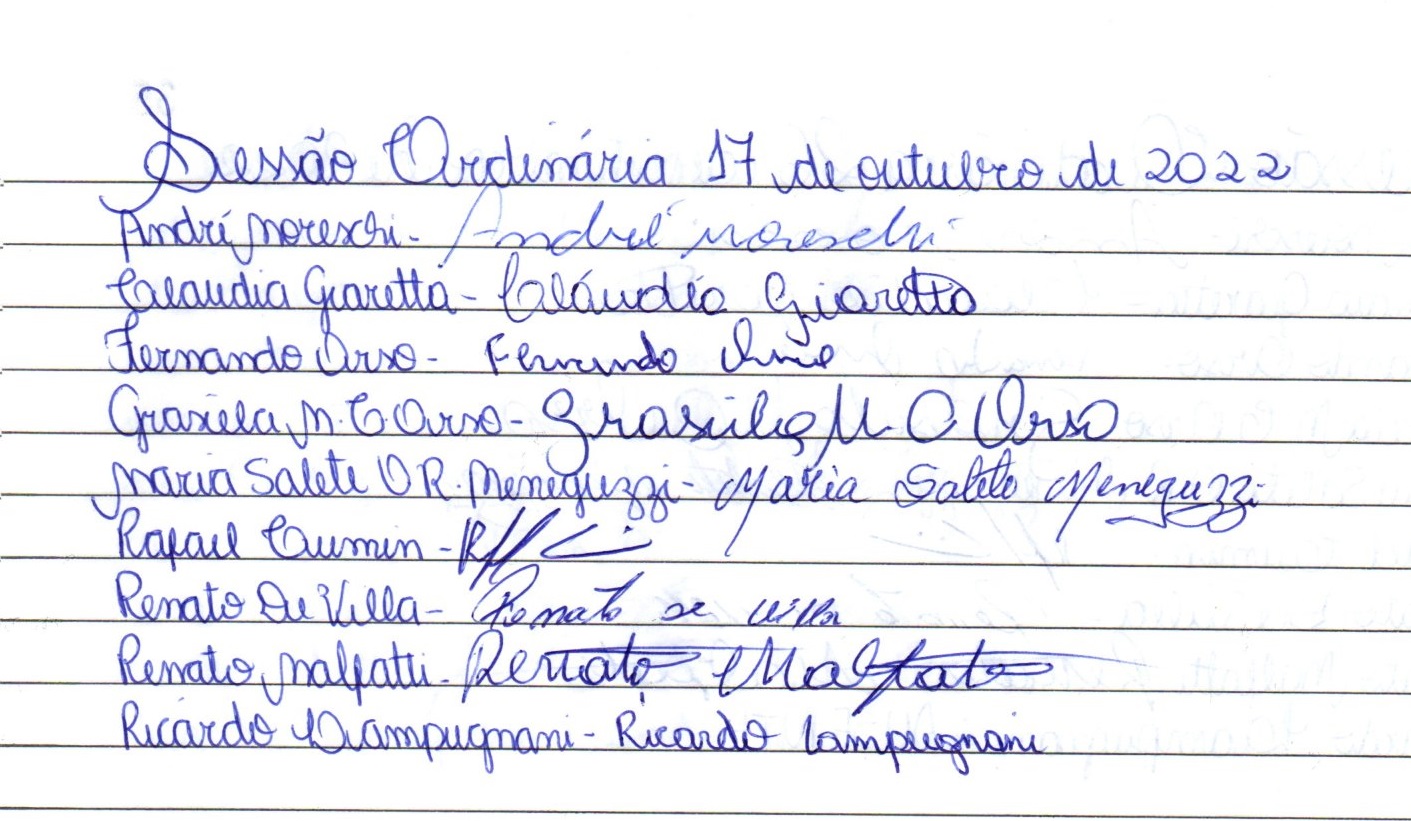 Sessão Ordinária 17 de outubro de 2022
André Moreschi - André Moreschi
Claudia Giaretta - Cláudia Giaretta
Fernando Orso - Fernando
Grasiela M. C. Orso - Grasiela M. C Orso
Maria Salete O R. Meneguzzi - Maria Salete Meneguzzi
Rafael Cumin -
Renato De Villa - Renato de villa
Renato Malfatti - Renato Malfatti
Ricardo Lampugnani - Ricardo Lampugnani